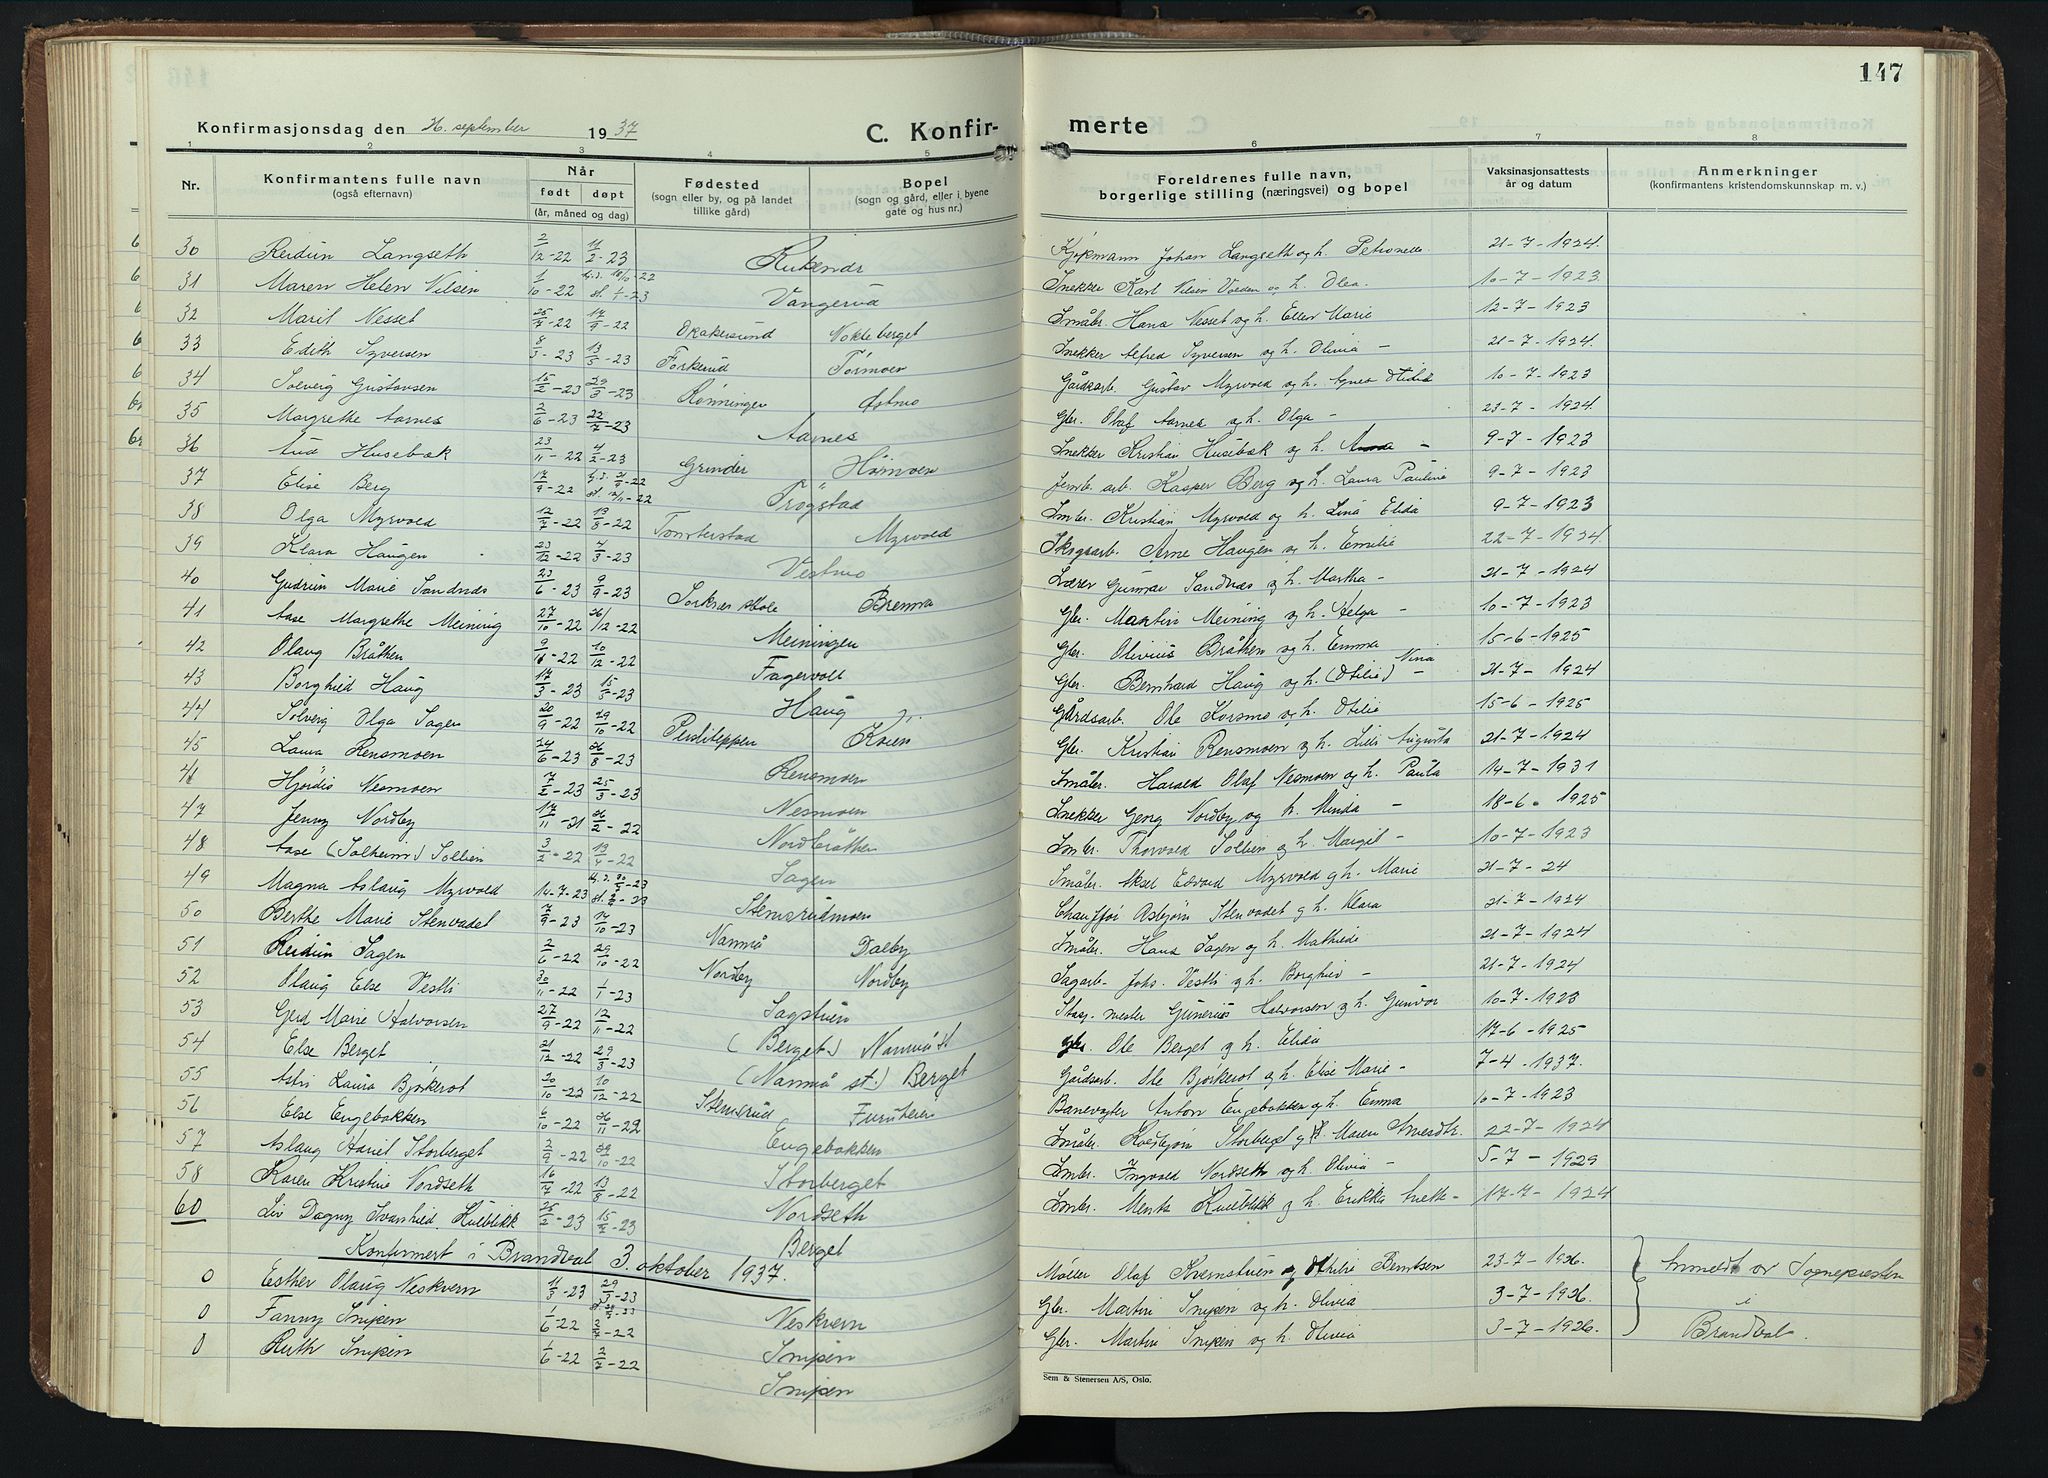 147
Konfirmasjonsdag den 26. september 1937
C. Konfir-
merte
1 2 3 4 5 6 7 8
Nr. Konfirmantens fulle navn (også efternavn) Når født døpt (år, måned og dag) Fødested (sogn eller by, og på landet tillike gård) Bopel (sogn og gård, eller i byene gate og hus nr.) Foreldrenes fulle navn, borgerlige stilling (næringsvei) og bopel Vaksinasjonsattests år og datum Anmerkninger (konfirmantens kristendomskunnskap m. v.)
30 Reidun Langseth 2/12-22 11/2-23 Kjøpmann Johan Langseth og h. Petronelle 21-7-1924.
31 Maren Helen Nilsen 1/10-22 Vangerud Snekker Karl Nilsen Volden og h. Olea 10-7-1923
32 Marit Nesset 25/7-22 17/9-22 Nokkeberget Småbr. Hans Nesset og h. Ellen Marie 12-7-1923
33 Edith Syversen 8/3-23 13/5-23 Forkerud Tørmoen Snekker Alfred Syversen og h. Olivia - 21-7-1924.
34 Solveig Gustavsen 15/2-23 29/3-23 Rønningen Østmo Gårdsarb. Gustav Myrvold og h. Agnes Otilie 10-7-1923
35 Margrethe Aarnes 2/6-23 22/7-23 Aarnes Gbr. Olaf Aarnes og h. Olga - 23-7-1924.
36 Aud Husebæk 23/11-22 4/2-23 Grinder Hömoen Snekker Kristian Husebæk og h. Anna - 9-7-1923
37 Elise Berg 17/9-22 Trøgstad Jernb. arb. Kasper Berg og h. Laura Pauline 9-7-1923
38 Olga Myrvold 12/7-22 13/8-22 Tomterstad Myrvold Smbr. Kristian Myrvold og h. Lina Elida 9-7-1923
39 Klara Haugen 23/12-22 4/3-23 Vestmo Skogsarb. Arne Haugen og h. Emilie 22-7-1924.
40 Gudrun Marie Sandnæs 23/6-23 9/9-23 Sorknes skole Brenna Lærer Gunnar Sandnæs og h. Martha - 21-7-1924
41 Aase Margrethe Meining 27/10-22 26/12-22 Meiningen Gbr. Martin Meining og h. Helga - 10-7-1923
42 Olaug Bråthen 9/11-22 10/12-22 Fagervoll Gbr. Olivius Bråthen og h. Emma 15-6-1925
43 Borghild Haug 17/3-23 15/5-23 Haug Gbr. Bernhard Haug og h. (Otilie) Nina - 21-7-1924
44 Solveig Olga Sagen 20/9-22 29/10-22 Perlsteppen Koien Gårdsarb. Ole Korsmo og h. Otilie 15-6-1925
45 Laura Rensmoen 24/6-23 26/8-23 Rensmoen Gbr. Kristian Rensmoen og h. Lilli Augusta 21-7-1924
46 Hjørdis Nesmoen 7/2-23 25/3-23 Nesmoen Småbr. Harald Olaf Nesmoen og h. Paula 14-7-1931
47 Jenny Nordby 17/11-21 26/2-22 Nordbråthen Snekker Georg Nordby og h. Minda - 18-6-1925
48 Aase (Solheim) Sollien 3/2-22 13/4-22 Sagen Smbr. Thorvald Sollien og h. Margit - 10-7-1923
49 Magna Aslaug Myrvold 14-7-23 Stemsrudmoen Småbr. Aksel Edvard Myrvold og h. Marie 21-7-24
50 Berthe Marie Stenvadet 7/9-23 14/10-23 Namnå Dalby Chauffør Asbjørn Stenvadet og h. Klara 21-7-1924
51 Reidun Sagen 2/6-22 29/10-22 Nordby Nordby Småbr. Hans Sagen og h. Mathilde 21-7-1924
52 Olaug Else Vestli 30/11-22 1/1-23 Sagstuen Sagarb. Johs. Vestli og h. Borghild - 21-7-1924
53 Gerd Marie Halvorsen 27/9-22 12/11-22 (Berget) Namnå st Stasj. mester Gunerius Halvorsen og h. Gunvor 10-7-1923
54 Else Berget 21/12-22 29/3-23 (Namnå st.) Berget Gbr. Ole Berget og h. Elida 17-6-1925
55 Astri Laura Bjørkerot 20/10-22 10/12-22 Stemsrud Furuheim Gårdsarb. Ole Bjørkerot og h. Elise Marie - 7-4-1937.
56 Else Engebakken 6/10-22 26/11-22 Engebakken Banevogter Anton Engebakken og h. Emma 10-7-1923
57 Aslaug Hariet Storberget 2/9-22 29/10-22 Storberget Småbr. Storberget og h. Maren 22-7-1924
58 Karen Kristine Nordseth 16/7-22 13/8-22 Nordseth Smbr. Ingvald Nordseth og h. Olivia - 5-7-1929
60 Liv Dagny Svanhild Kulblikk 25/2-23 15/4-23 Berget Smbr. Kulblikk og h. Erikka Anette - 17-7-1924
Konfirmert i Brandval 3. oktober 1937.
0 Esther Olaug Neskvern 11/3-23 29/3-23 Neskvern Møller Olaf Kvernstuen og Othilie Berntsen 23-7-1926. Anmeldt av Sognepresten
0 Fanny Snipen 1/6-22 2/7-22 Snipen Gbr. Martin Snipen og h. Olivia 3-7-1926. i
0 Ruth Snipen 1/6-22 2/7-22 Snipen Gbr. Martin Snipen og h. Olivia 3-7-1926. Brandval.
Sem & Stenersen A/S, Oslo.